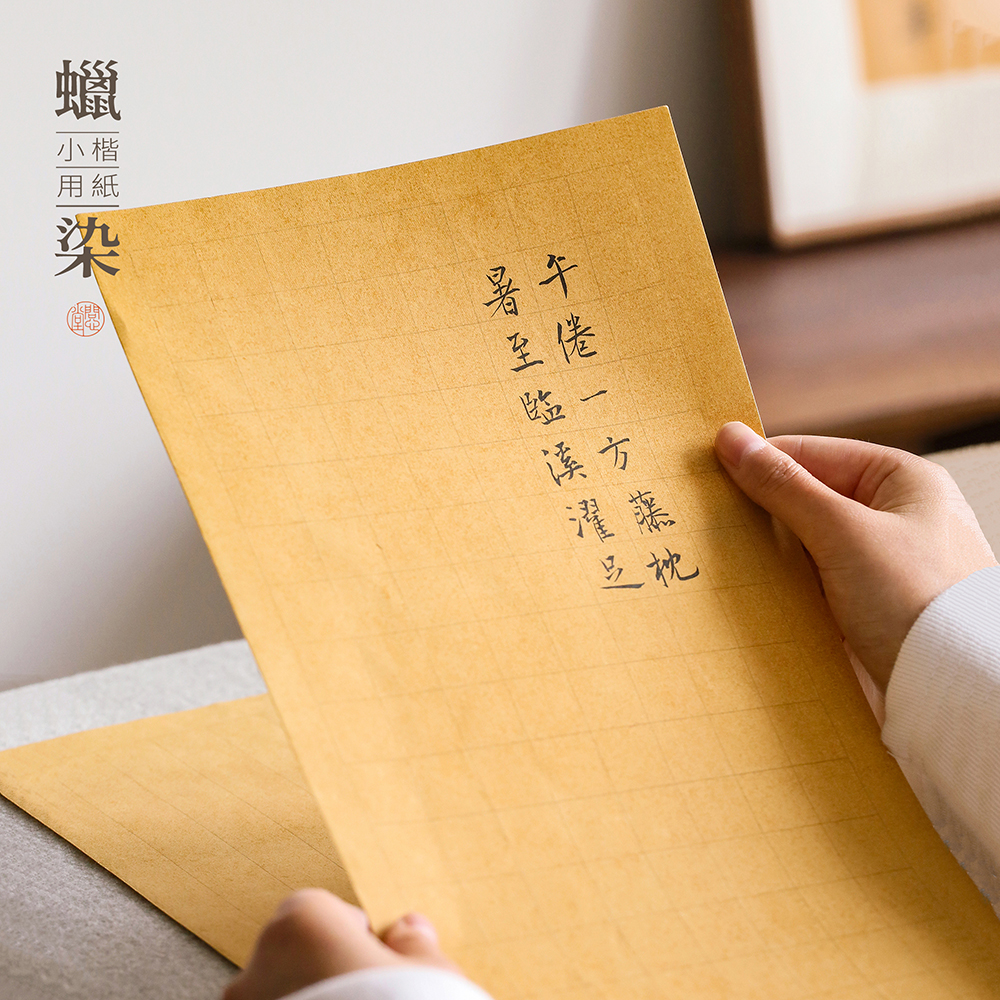 蠟
小楷
用紙
染
午倦一方藤枕
暑至臨溪濯足